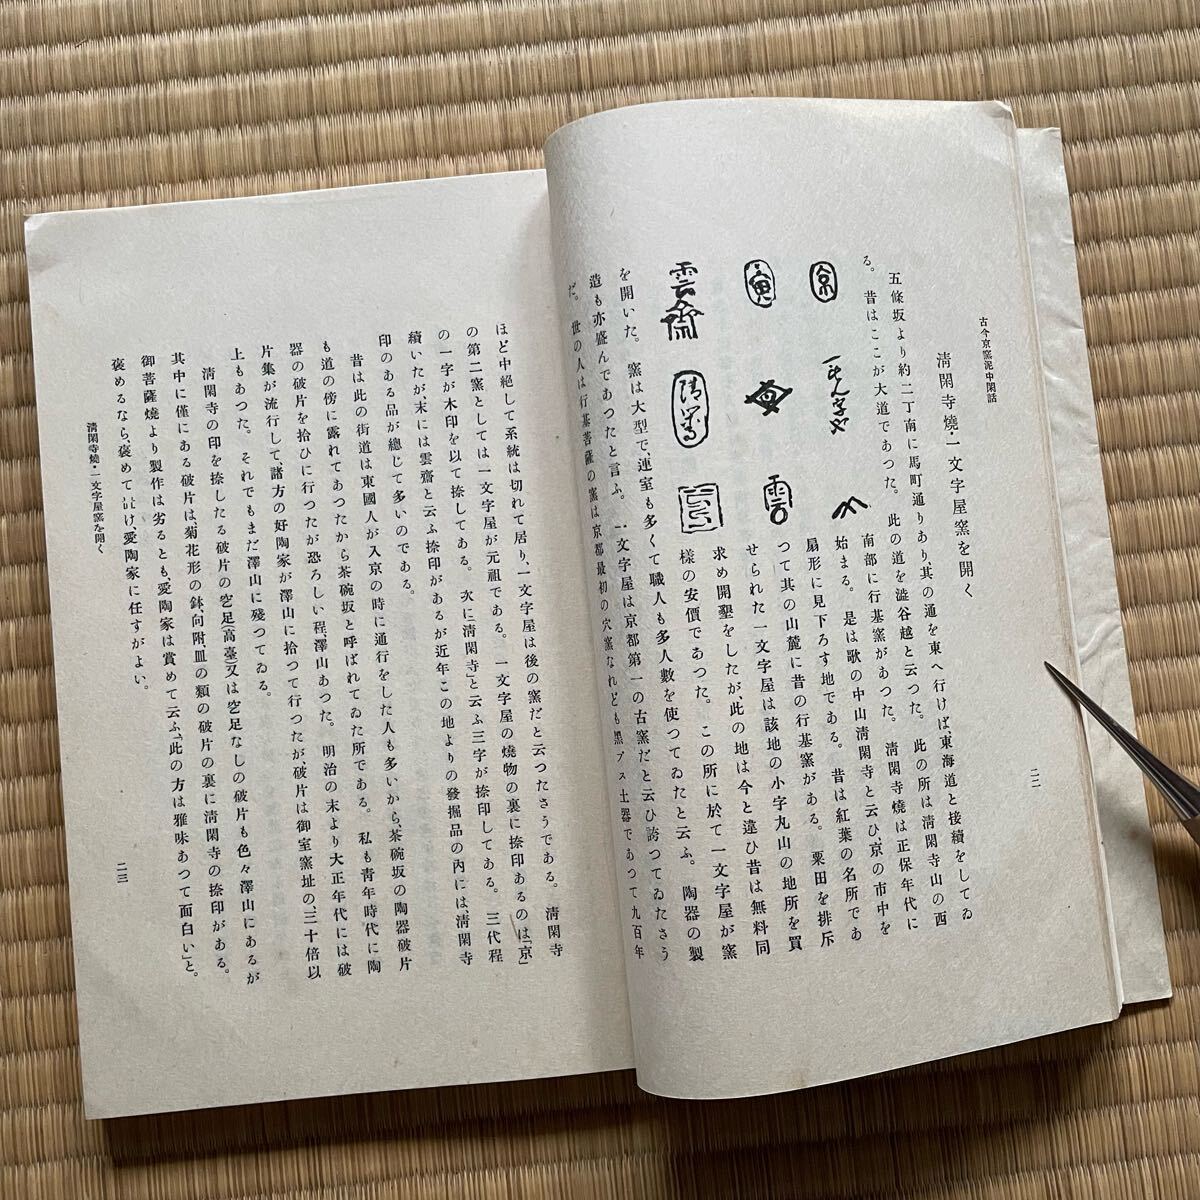 古今京窯泥中閑話
二二
清閑寺燒・一文字屋窯を開く
五條坂より約二丁南に馬町通りあり、其の通を東へ行けば、東海道と接續をしてゐ
る。昔はここが大道であつた。此の道を澁谷越と云つた。此の所は淸閑寺山の西
南部に行基窯があつた。淸閑寺燒は正保年代に
始まる。是は歌の中山淸閑寺と云ひ、京の市中を
扇形に見下ろす地である。昔は紅葉の名所であ
つて其の山麓に昔の行基窯がある。粟田を排斥
せられた一文字屋は該地の小字丸山の地所を買
求め開墾をしたが、此の地は今と違ひ昔は無料同
樣の安價であつた。この所に於て一文字屋が窯
を開いた。窯は大型で、連室も多くて職人も多人數を使つてゐたと云ふ。陶器の製
造も亦盛んであつたと言ふ。一文字屋は京都第一の古窯だと云ひ誇つてゐたさう
だ。世の人は行基菩薩の窯は京都最初の穴窯なれども黑ブス土器であつて九百年
京
寅
雲
雲齋
淸閑寺燒・一文字屋窯を開く
二三
ほど中絕して系統は切れて居り、一文字屋は後の窯だと云つたさうである。淸閑寺
の第二窯としては一文字屋が元祖である。一文字屋の燒物の裏に捺印あるのは「京」
の一字が木印を以て捺してある。次に「淸閑寺」と云ふ三字が捺印してある。三代程
續いたが、末には雲齋と云ふ捺印があるが近年この地よりの發掘品の內には、淸閑寺
印のある品が總じて多いのである。
昔は此の街道は東國人が入京の時に通行をした人も多いから、茶碗坂の陶器破片
も道の傍に露れてあつたから茶碗坂と呼ばれてゐた所である。私も靑年時代に陶
器の破片を拾ひに行つたが恐ろしい程、澤山あつた。明治の末より大正年代には破
片集が流行して、諸方の好陶家が澤山に拾つて行つたが、破片は御室窯址の、三十倍以
上もあつた。それでもまだ澤山に殘つてゐる。
淸閑寺の印を捺したる破片の空足(高臺)又は空足なしの破片も色々澤山にあるが
其中に僅にある破片は、菊花形の鉢、向附皿の類の破片の裏に淸閑寺の捺印がある。
御菩薩燒より製作は劣るとも、愛陶家は賞めて云ふ、「此の方は雅味あつて面白い」と。
褒めるなら、褒めて置け、愛陶家に任すがよい。